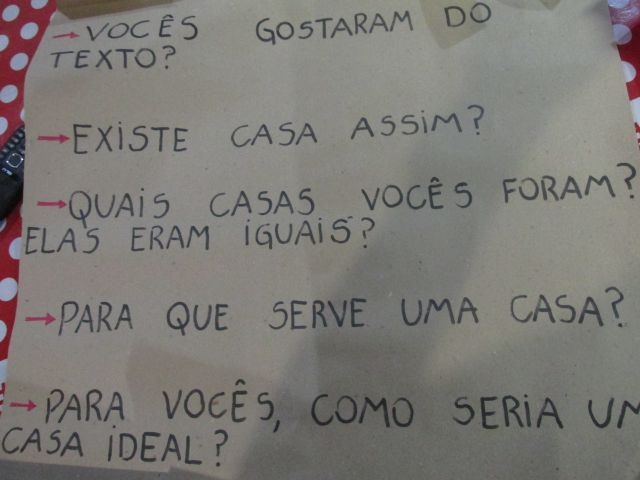 → VOCÊS GOSTARAM DO
TEXTO?
→ EXISTE CASA ASSIM?
→ QUAIS CASAS VOCÊS FORAM?
ELAS ERAM IGUAIS?
→ PARA QUE SERVE UMA CASA?
→ PARA VOCÊS, COMO SERIA UM
CASA IDEAL?